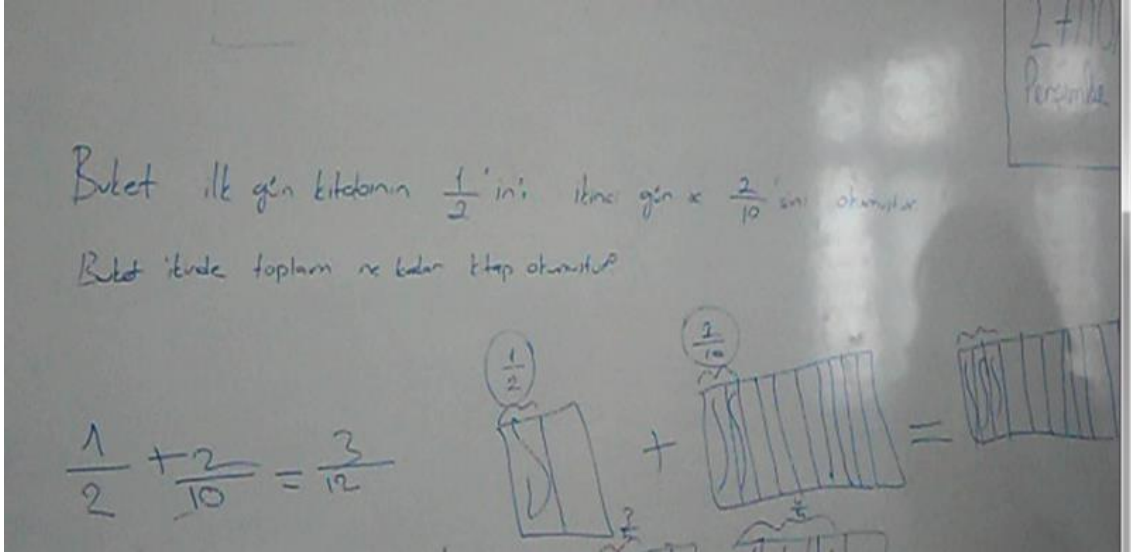 27/10
Perşembe
Buket ilk gün kitabının 1/2'ini ikinci gün 2/10 sini okumuştur.
Buket toplam ne kadar kitap okumuştur?
1/2 + 2/10 = 3/12
1/2
+
2/10
=